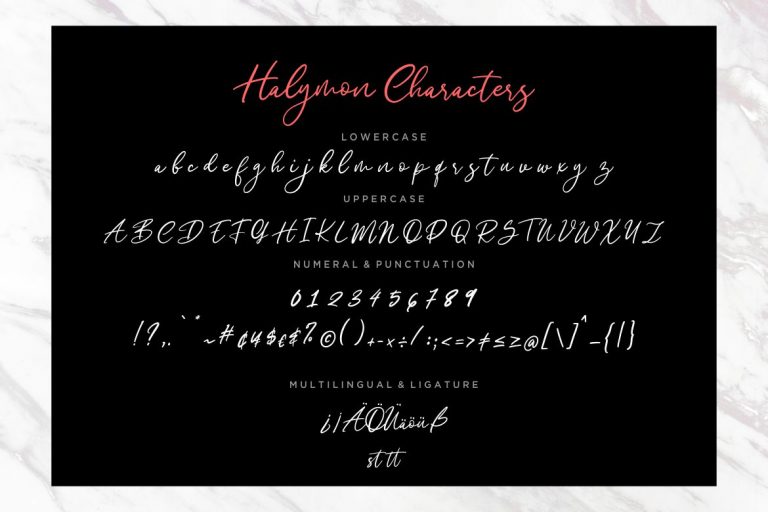 Halymon Characters
LOWERCASE
a b c d e f g h i j k l m n o p q r s t u v w x y z
UPPERCASE
A B C D E F G H I K L M N O P Q R S T U V W X Y Z
NUMERAL & PUNCTUATION
0 1 2 3 4 5 6 7 8 9
! ? , . ` * ~ # ¢ $ € & % © ( ) + - × ÷ / : ; < = > ≠ ≤ ≥ @ [ \ ] ^ _ { | }
MULTILINGUAL & LIGATURE
¿ ¡ Ä Ö Ü ä ö ü ß
st tt